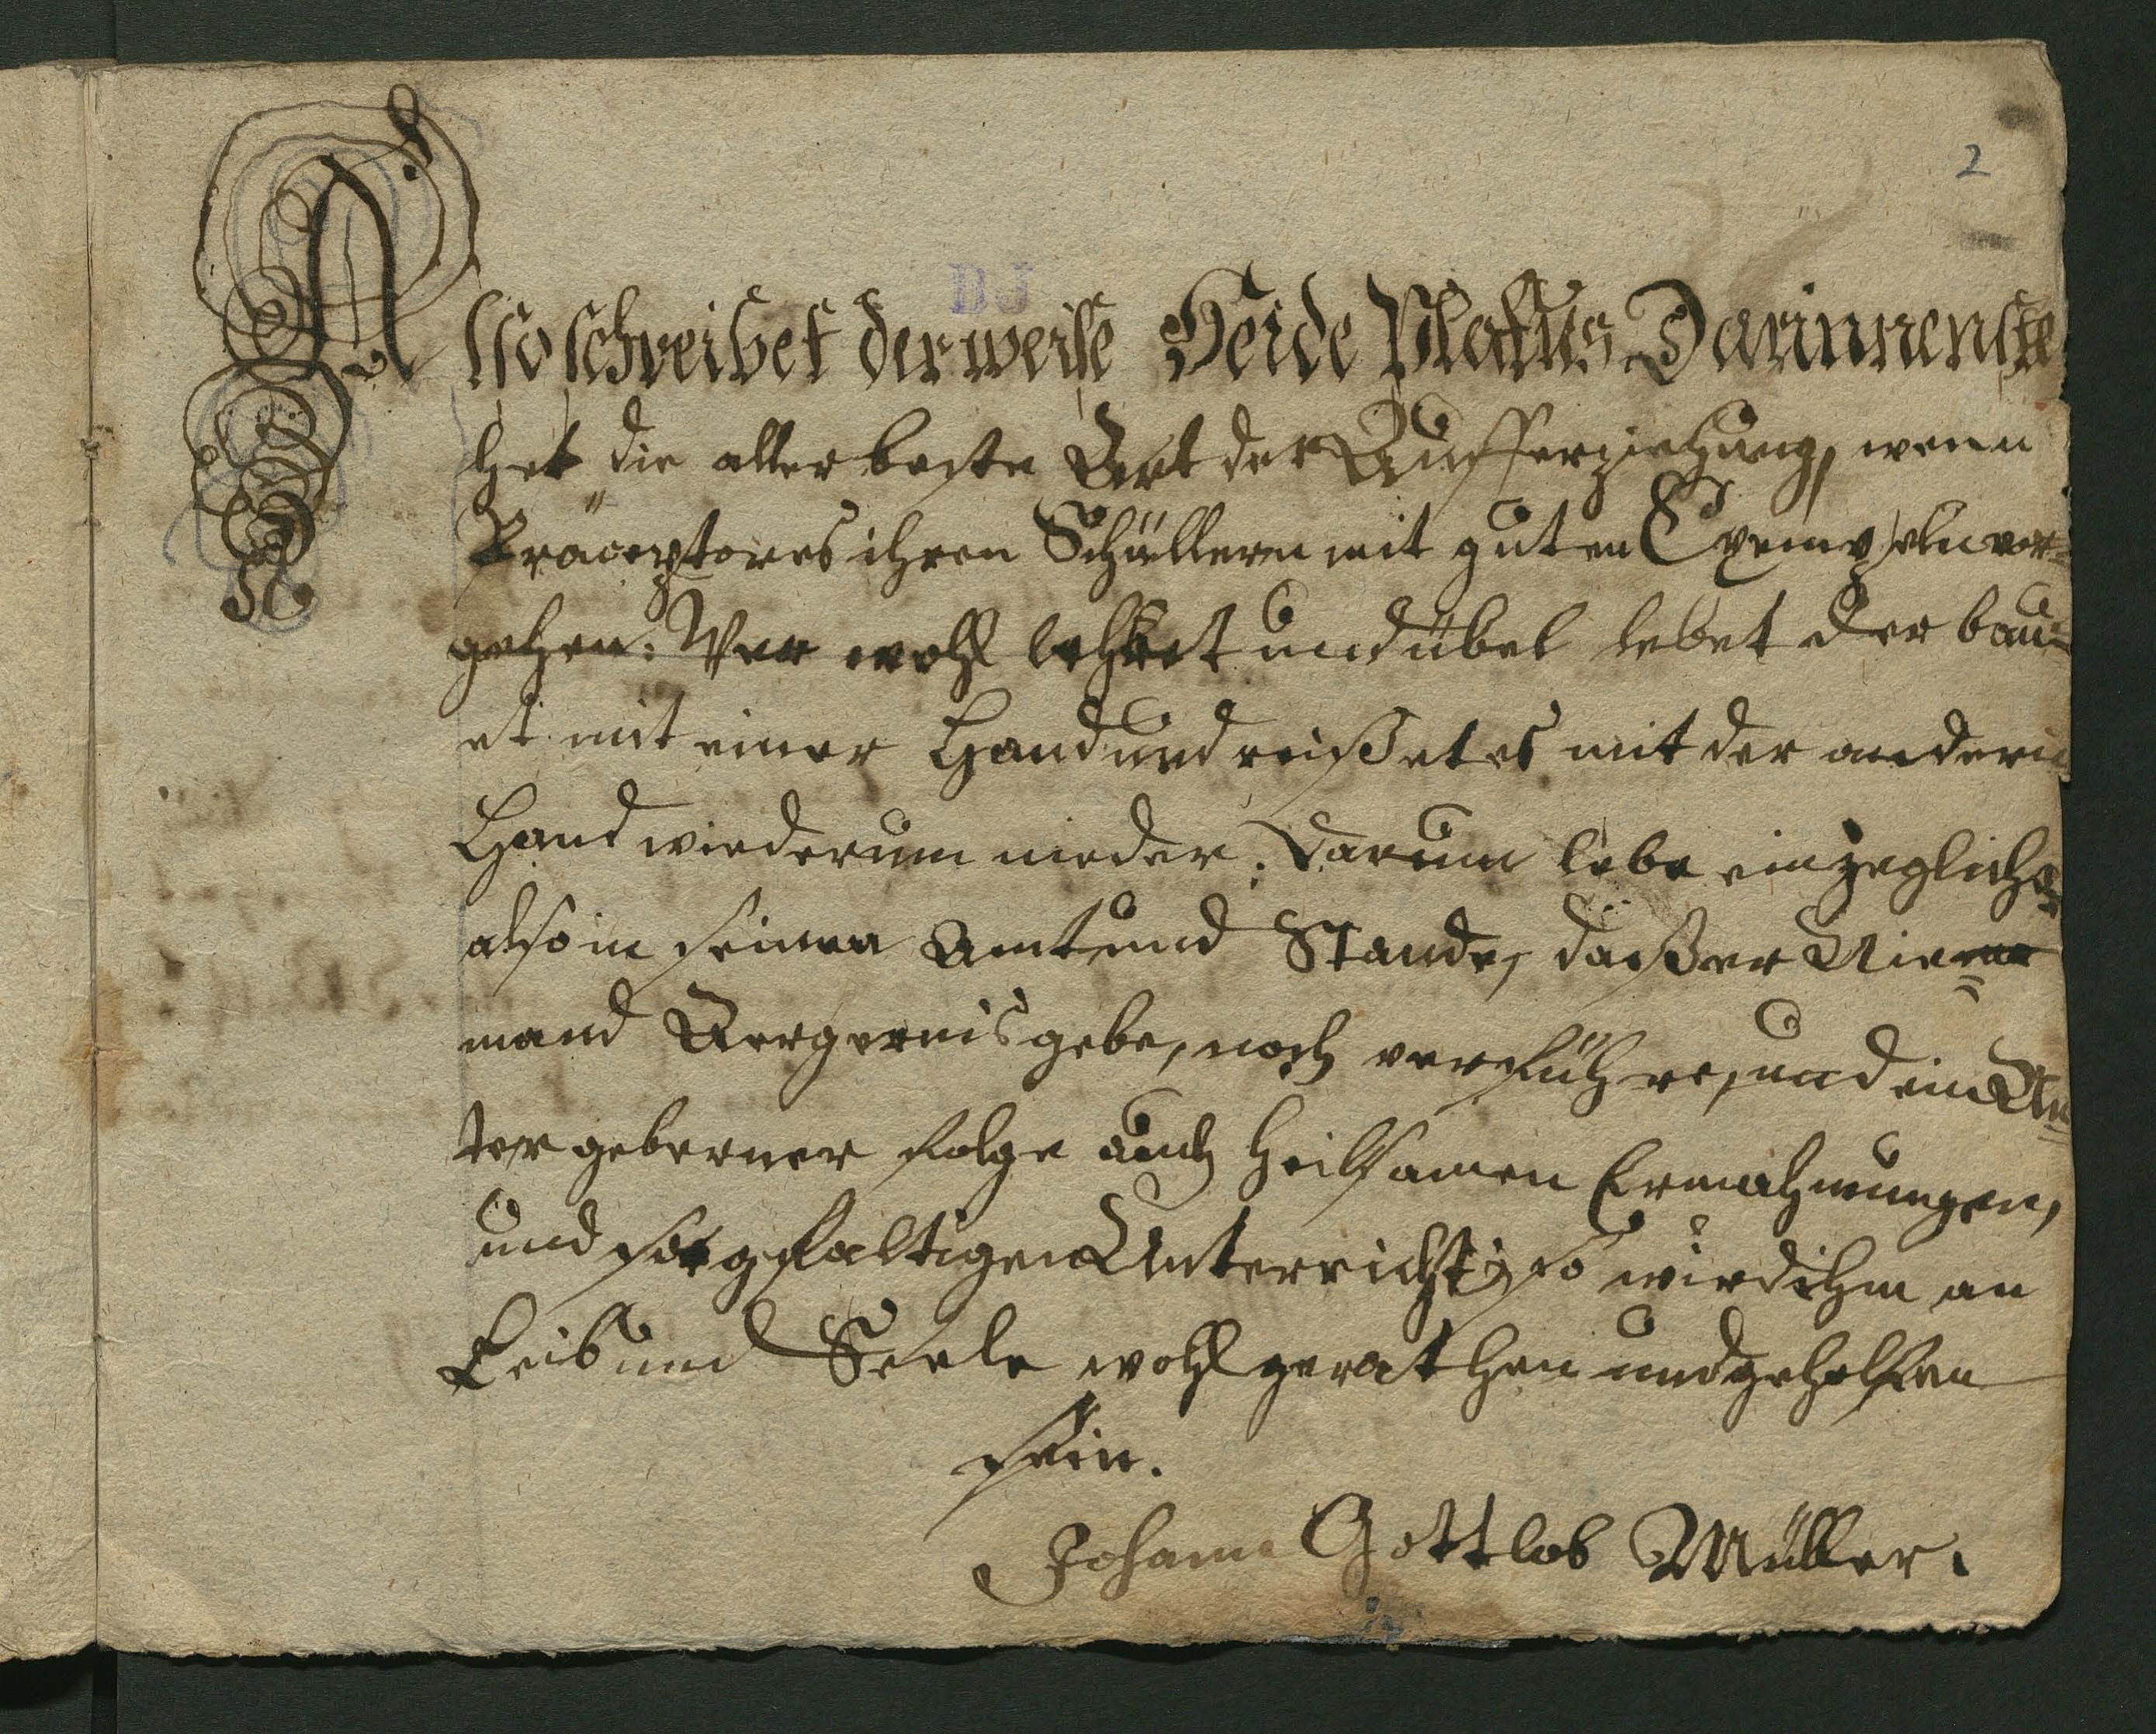 2
BJ
Also schreibet der weise Heide Platus Darinnen ste
het die aller beste Art der Aufferziehung, wenn
Präceptores ihren Schüllern mit guten Exempeln vor=
gehen: Wer wohl lehret und übel lebet der bau=
et mit einer Hand und reißet es mit der andern
Hand wiederum nieder; Darum lebe ein jeglicher
also in seinen Amt und Stande, daß er Nie=
mand Aergernis gebe, noch verführe, und ein Un=
tergebener folge auch heilsamen Ermahnungen,
und sorgfaltigen Unterricht; so wird ihm an
Leib und Seele wohl gerathen und geholfen
sein.
Johann Gottlob Müller.